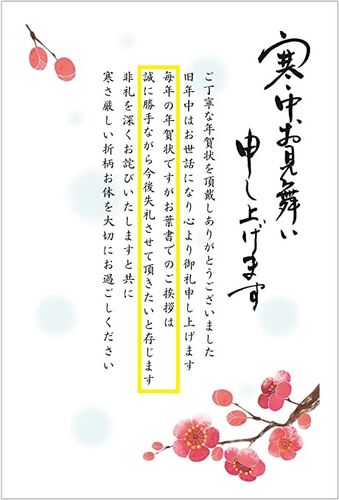 寒中お見舞い
申し上げます
ご丁寧な年賀状を頂戴しありがとうございました
旧年中はお世話になり心より御礼申し上げます
毎年の年賀状ですがお葉書でのご挨拶は
誠に勝手ながら今後失礼させて頂きたいと存じます
非礼を深くお詫びいたしますと共に
寒さ厳しい折柄お体を大切にお過ごしください